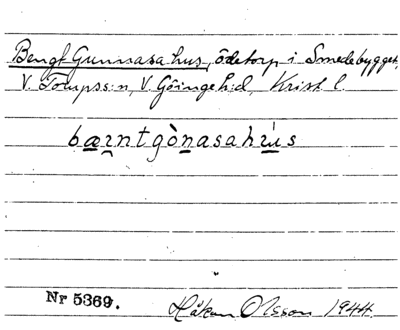 Bengt Gunnasa hus, ödetorp i Smedebygget,
V. Torups:n, V. Göinge h:d, Krist. l.
bærntgònasahúːs
Nr 5369.
Håkan Olsson 1944